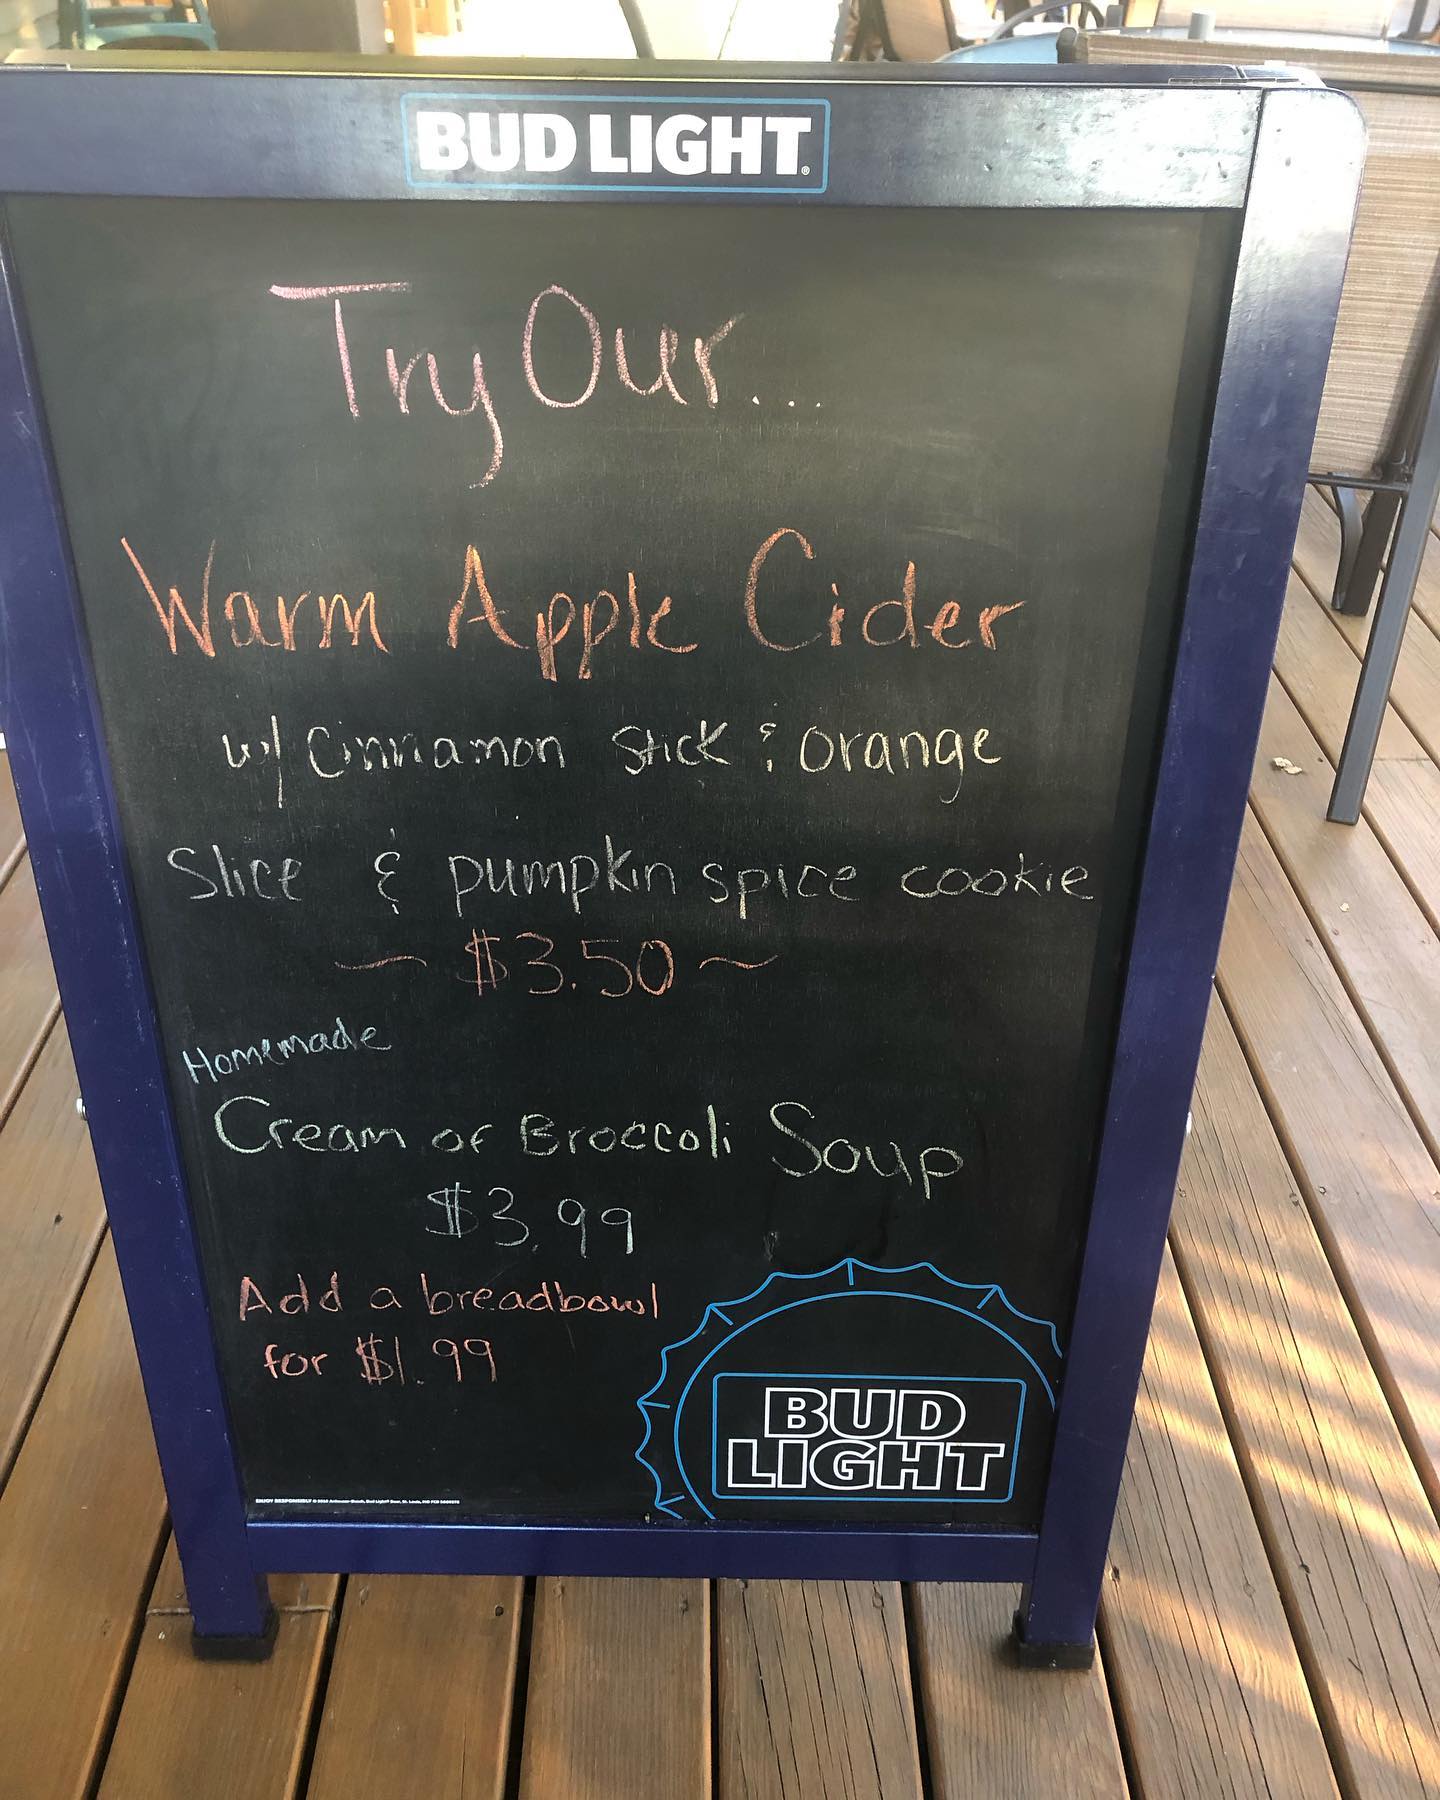 BUD LIGHT®
Try Our...
Warm Apple Cider
w/ Cinnamon Stick & orange
Slice & pumpkin spice cookie
~ $3.50 ~
Homemade
Cream of Broccoli Soup
$3.99
Add a breadbowl
for $1.99
BUD
LIGHT
ENJOY RESPONSIBLY